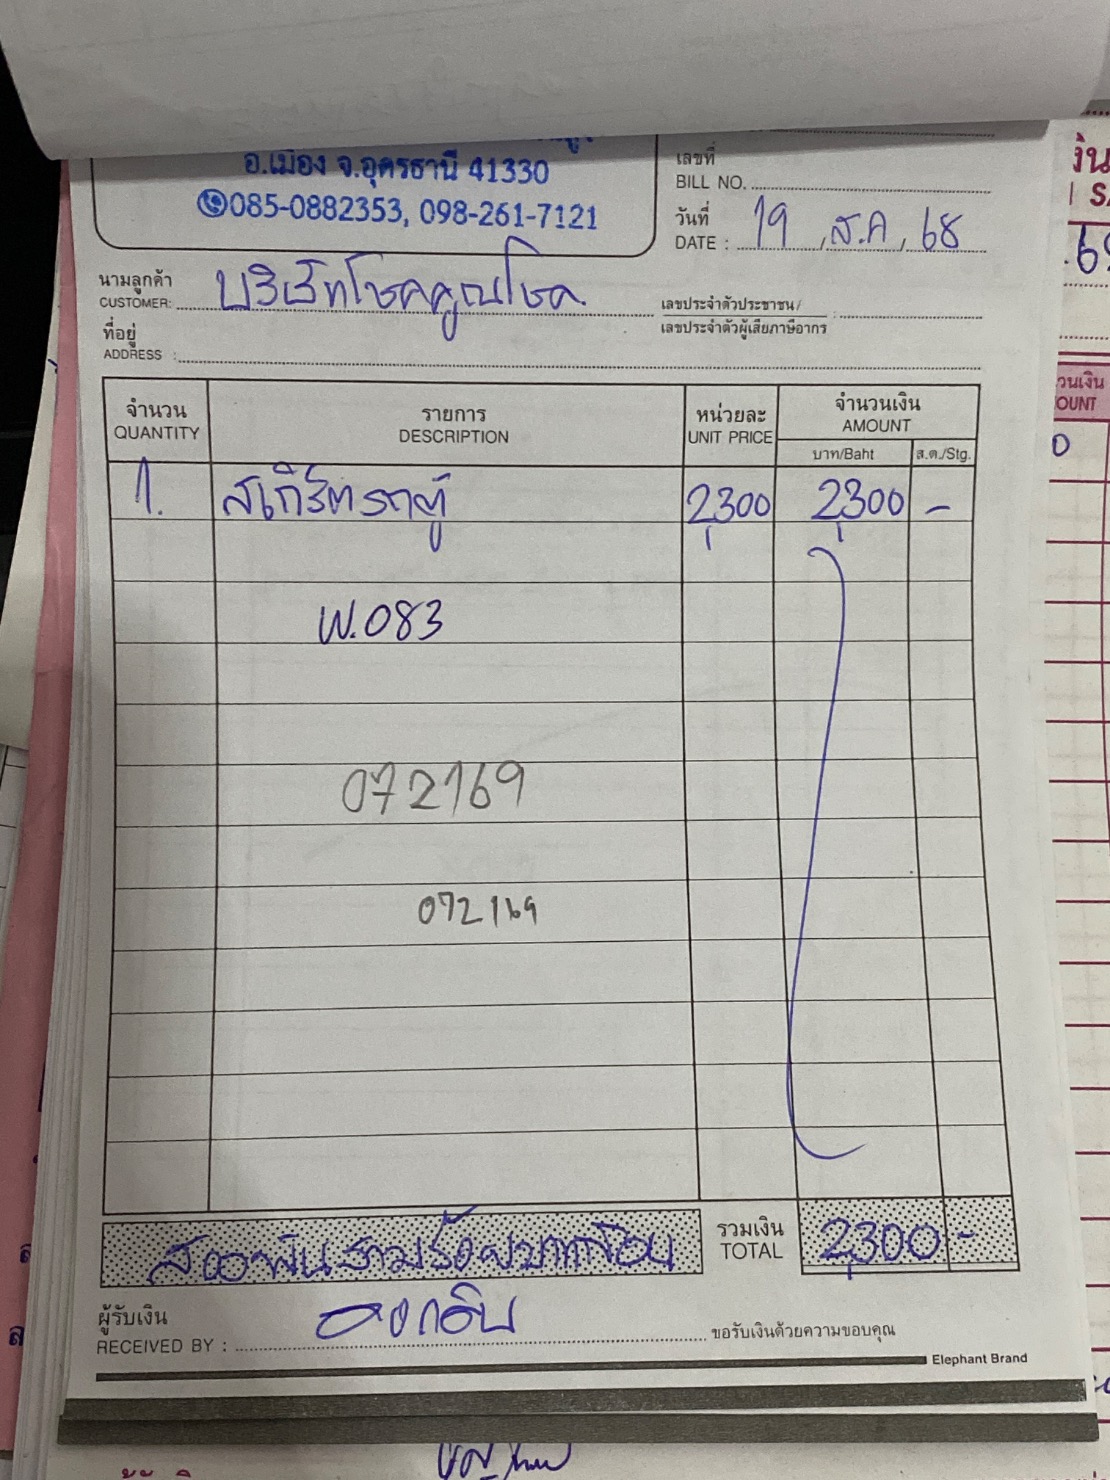 อ.เมือง จ.อุดรธานี 41330
085-0882353, 098-261-7121
เลขที่
BILL NO.
วันที่
DATE : 19 ,ส.ค, 68
นามลูกค้า
CUSTOMER: บริษัทโชคคูณโชค
เลขประจำตัวประชาชน/
เลขประจำตัวผู้เสียภาษีอากร :
ที่อยู่
ADDRESS :
จำนวน รายการ หน่วยละ จำนวนเงิน
QUANTITY DESCRIPTION UNIT PRICE AMOUNT
บาท/Baht ส.ต./Stg.
1. สเกิร์ตรถตู้ 2,300 2,300 -
พ.083
072169
072169
รวมเงิน
TOTAL 2,300 -
สองพันสามร้อยบาทถ้วน
ผู้รับเงิน
RECEIVED BY :
ขอรับเงินด้วยความขอบคุณ
Elephant Brand